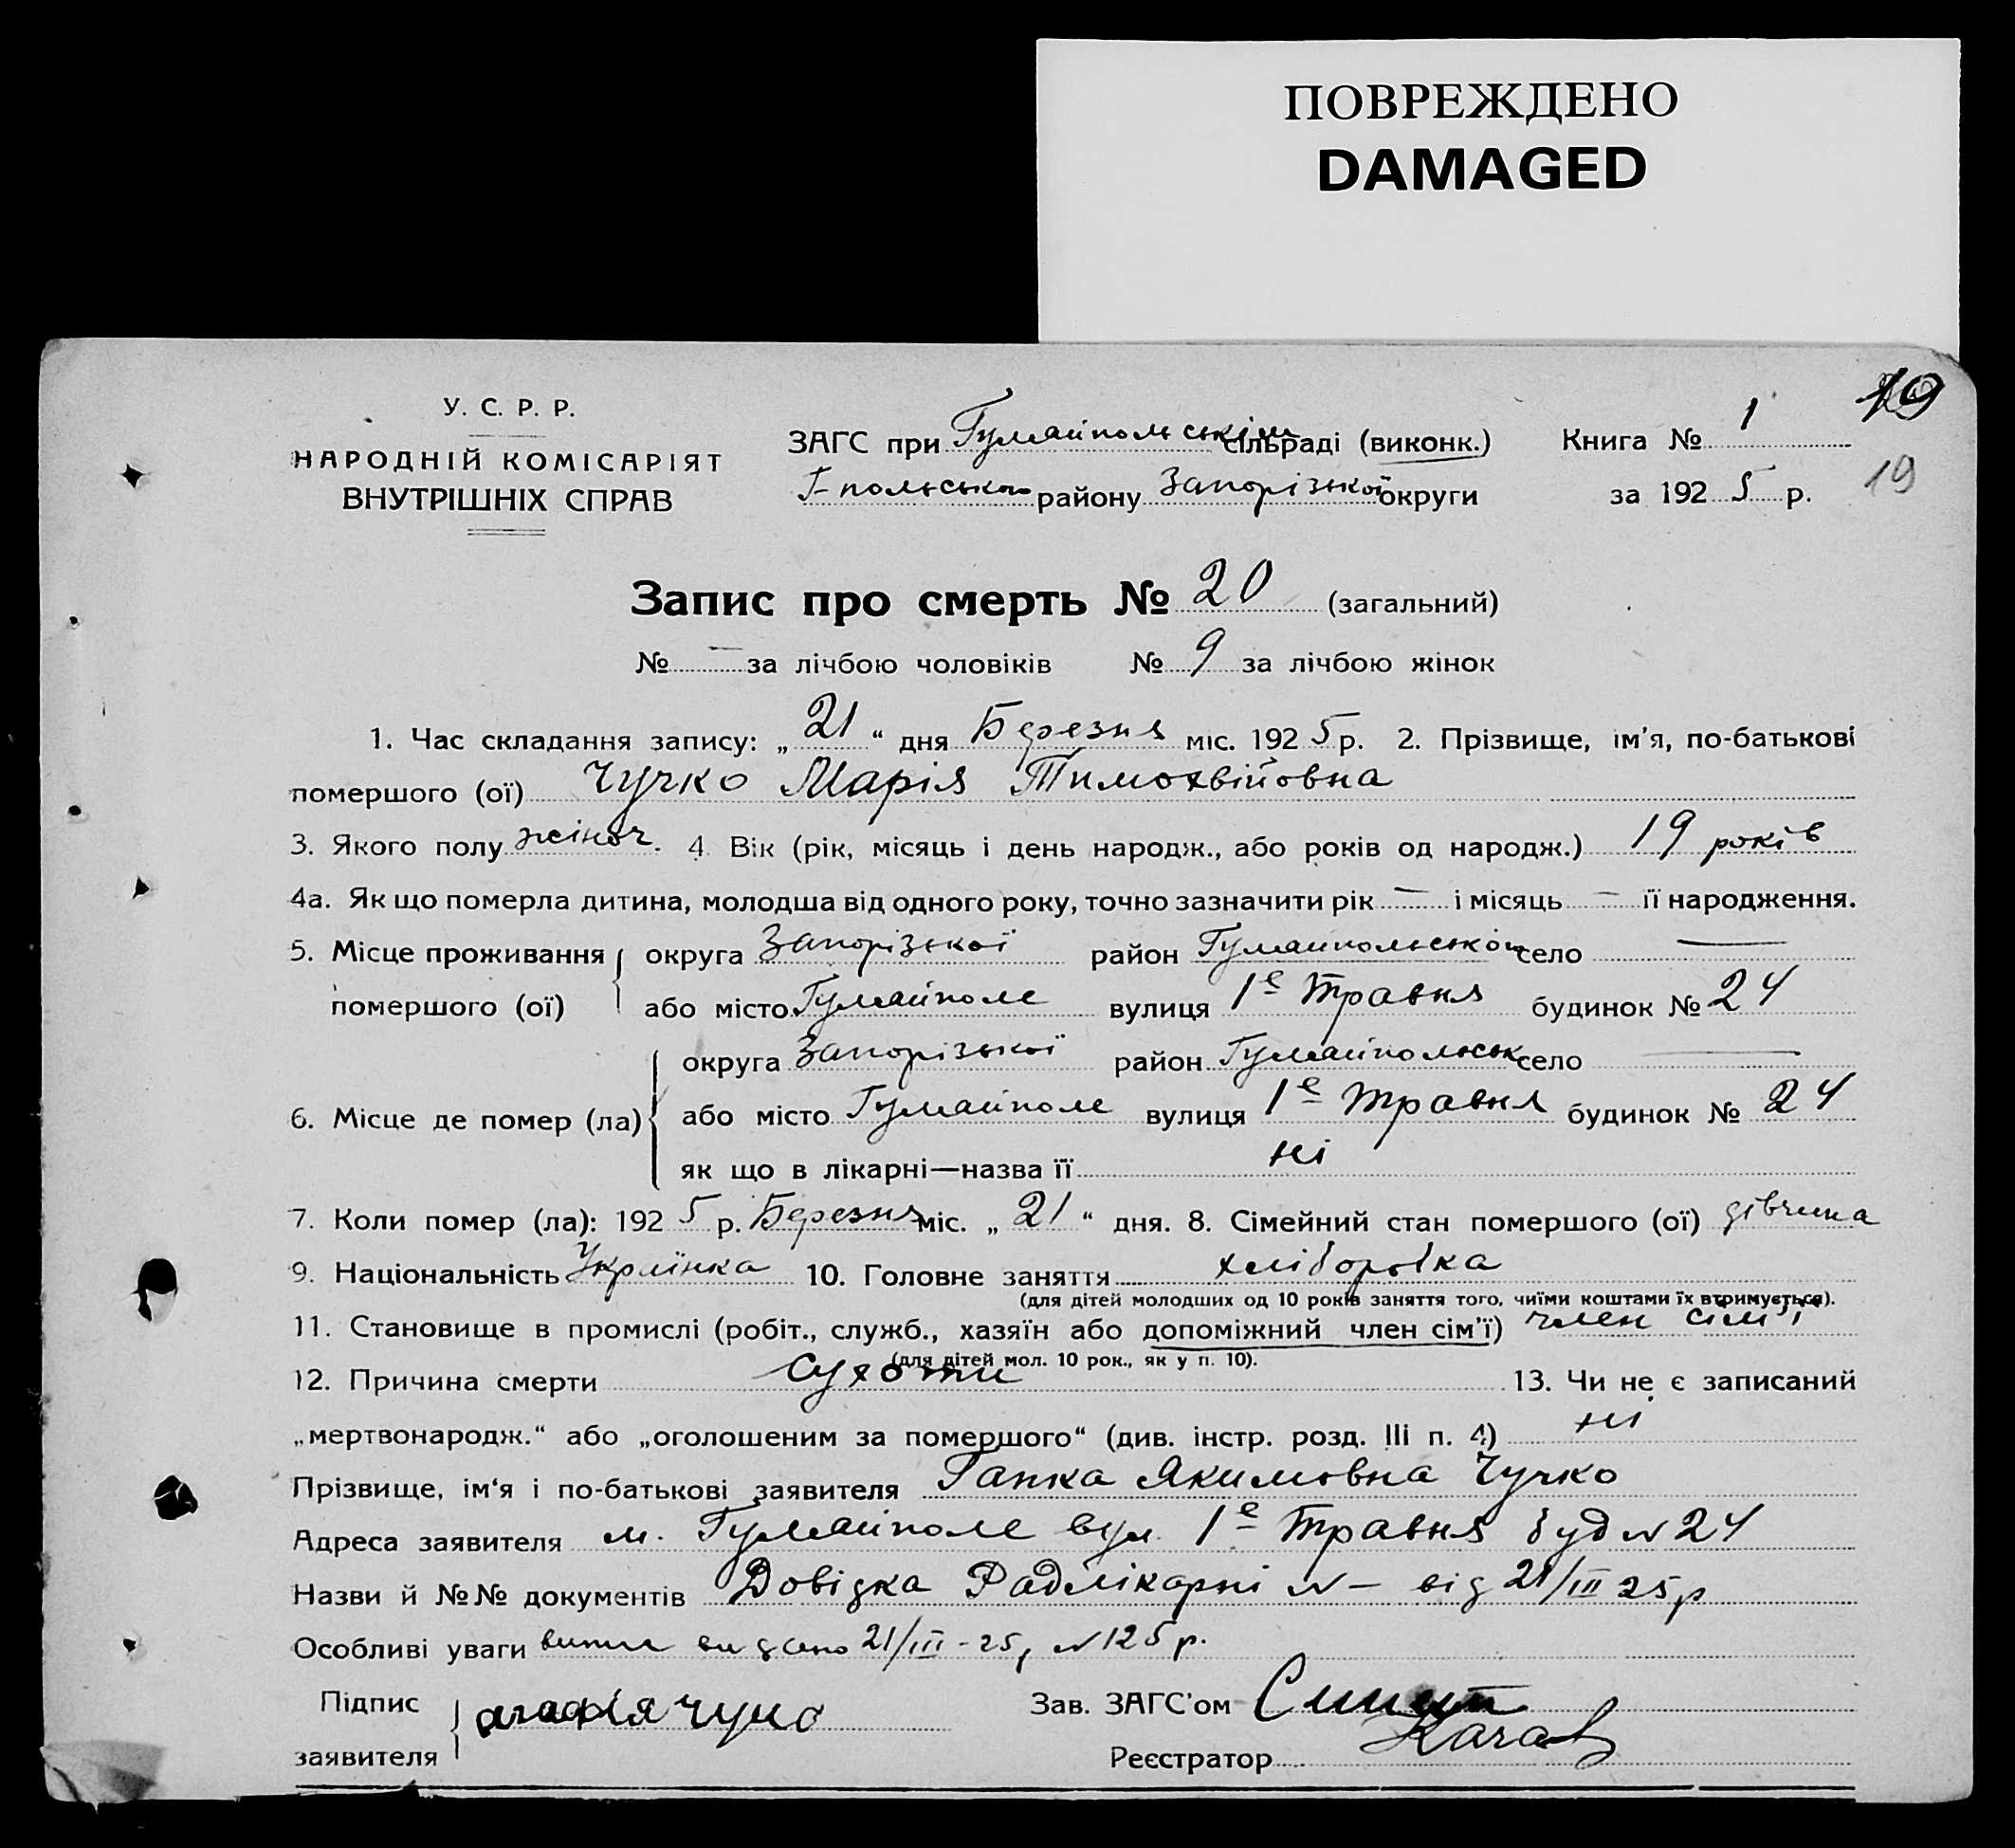 ПОВРЕЖДЕНО
DAMAGED
19
У. С. Р. Р.
НАРОДНІЙ КОМІСАРІЯТ
ВНУТРІШНІХ СПРАВ
ЗАГС при Гуляйпольськім сільраді (виконк.) Книга № 1
Г-польського району Запорізької округи за 1925 р. 19
Запис про смерть № 20 (загальний)
№ — за лічбою чоловіків № 9 за лічбою жінок
1. Час складання запису: „21“ дня Березня міс. 1925 р. 2. Прізвище, ім'я, по-батькові
помершого (ої) Чучко Марія Тимохвійовна
3. Якого полу жіноч. 4 Вік (рік, місяць і день народж., або років од народж.) 19 років
4а. Як що померла дитина, молодша від одного року, точно зазначити рік — і місяць — її народження.
5. Місце проживання округа Запорізької район Гуляйпольської село —
помершого (ої) або місто Гуляйполе вулиця 1е Травня будинок № 24
округа Запорізької район Гуляйпольськ село —
6. Місце де помер (ла) або місто Гуляйполе вулиця 1е Травня будинок № 24
як що в лікарні—назва її ні
7. Коли помер (ла): 1925 р. Березня міс. „21“ дня. 8. Сімейний стан помершого (ої) дівчина
9. Національність Українка 10. Головне заняття хліборобка
(для дітей молодших од 10 років заняття того, чиїми коштами їх втримується).
11. Становище в промислі (робіт., служб., хазяїн або допоміжний член сім'ї) член сім'ї
(для дітей мол. 10 рок., як у п. 10).
12. Причина смерти Сухоти 13. Чи не є записаний
„мертвонародж.“ або „оголошеним за помершого“ (див. інстр. розд. III п. 4) ні
Прізвище, ім'я і по-батькові заявителя Гапка Якимовна Чучко
Адреса заявителя м. Гуляйполе вул. 1е Травня буд № 24
Назви й №№ документів Довідка Радлікарні № — від 21/III 25р
Особливі уваги видано 21/III-25, № 125 р.
Підпис агафія чучко Зав. ЗАГС'ом
заявителя Реєстратор